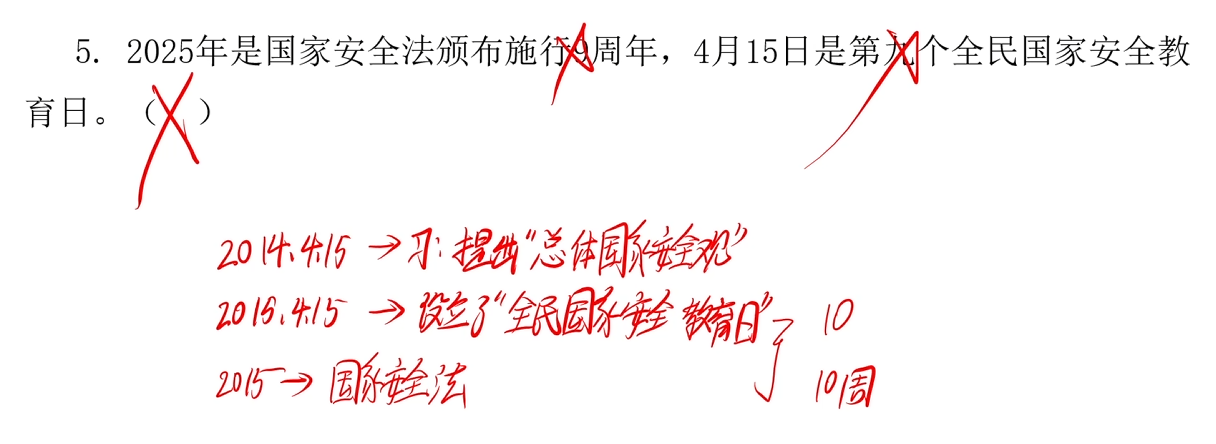 5. 2025年是国家安全法颁布施行9周年，4月15日是第九个全民国家安全教
育日。（ ）
2014.4.15 → 习:提出“总体国家安全观”
2016.4.15 → 设立了“全民国家安全教育日” 10
2015 → 国家安全法 10周